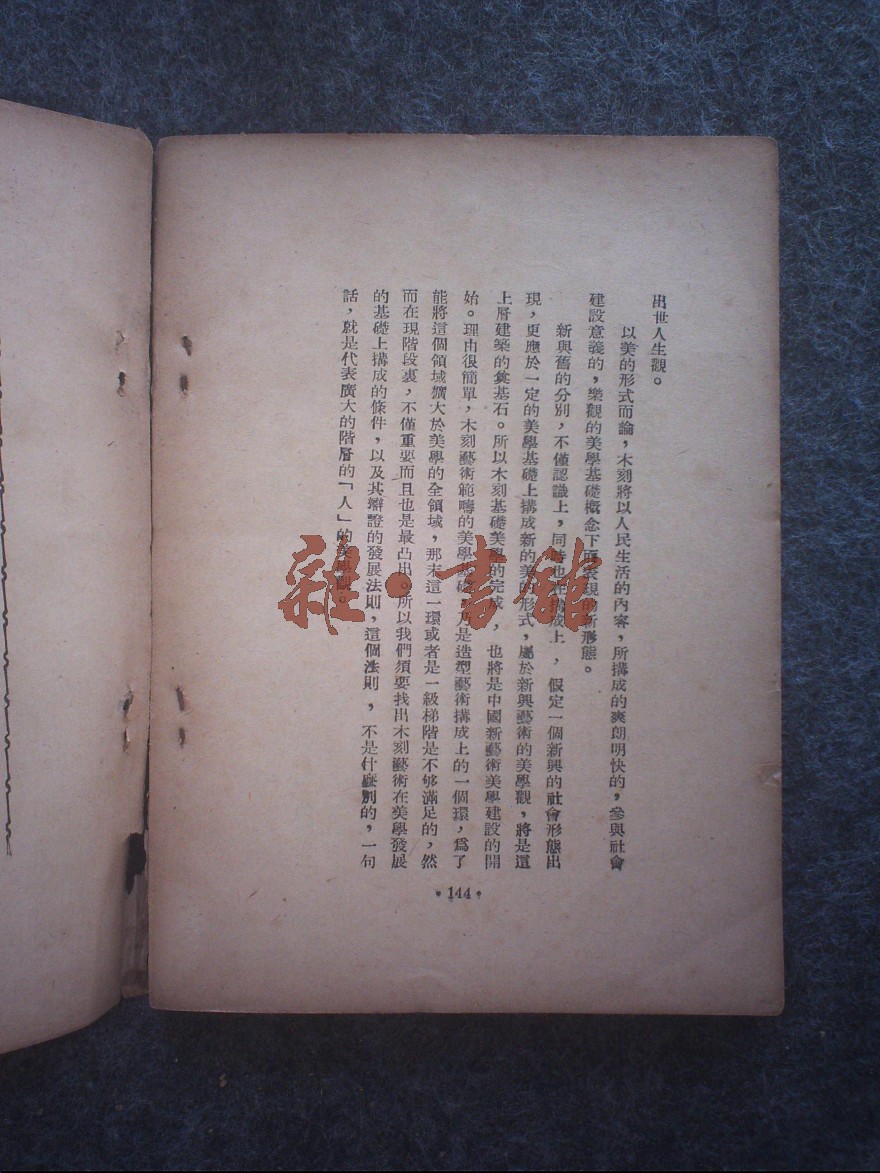 出世人生觀。
以美的形式而論，木刻將以人民生活的內容，所搆成的爽朗明快的，參與社會
建設意義的，樂觀的美學基礎概念下面表現的新形態。
新與舊的分別，不僅認識上，同時也在搆成上，假定一個新興的社會形態出
現，更應於一定的美學基礎上搆成新的美的形式，屬於新興藝術的美學觀，將是這
上層建築的奠基石。所以木刻基礎美學的完成，也將是中國新藝術美學建設的開
始。理由很簡單，木刻藝術範疇的美學基礎，乃是造型藝術搆成上的一個環，爲了
能將這個領域擴大於美學的全領域，那末這一環或者是一級梯階是不够滿足的，然
而在現階段裏，不僅重要而且也是最凸出。所以我們須要找出木刻藝術在美學發展
的基礎上搆成的條件，以及其辯證的發展法則，這個法則，不是什麽別的，一句
話，就是代表廣大的階層的「人」的美學觀。
•144•
雜·書館